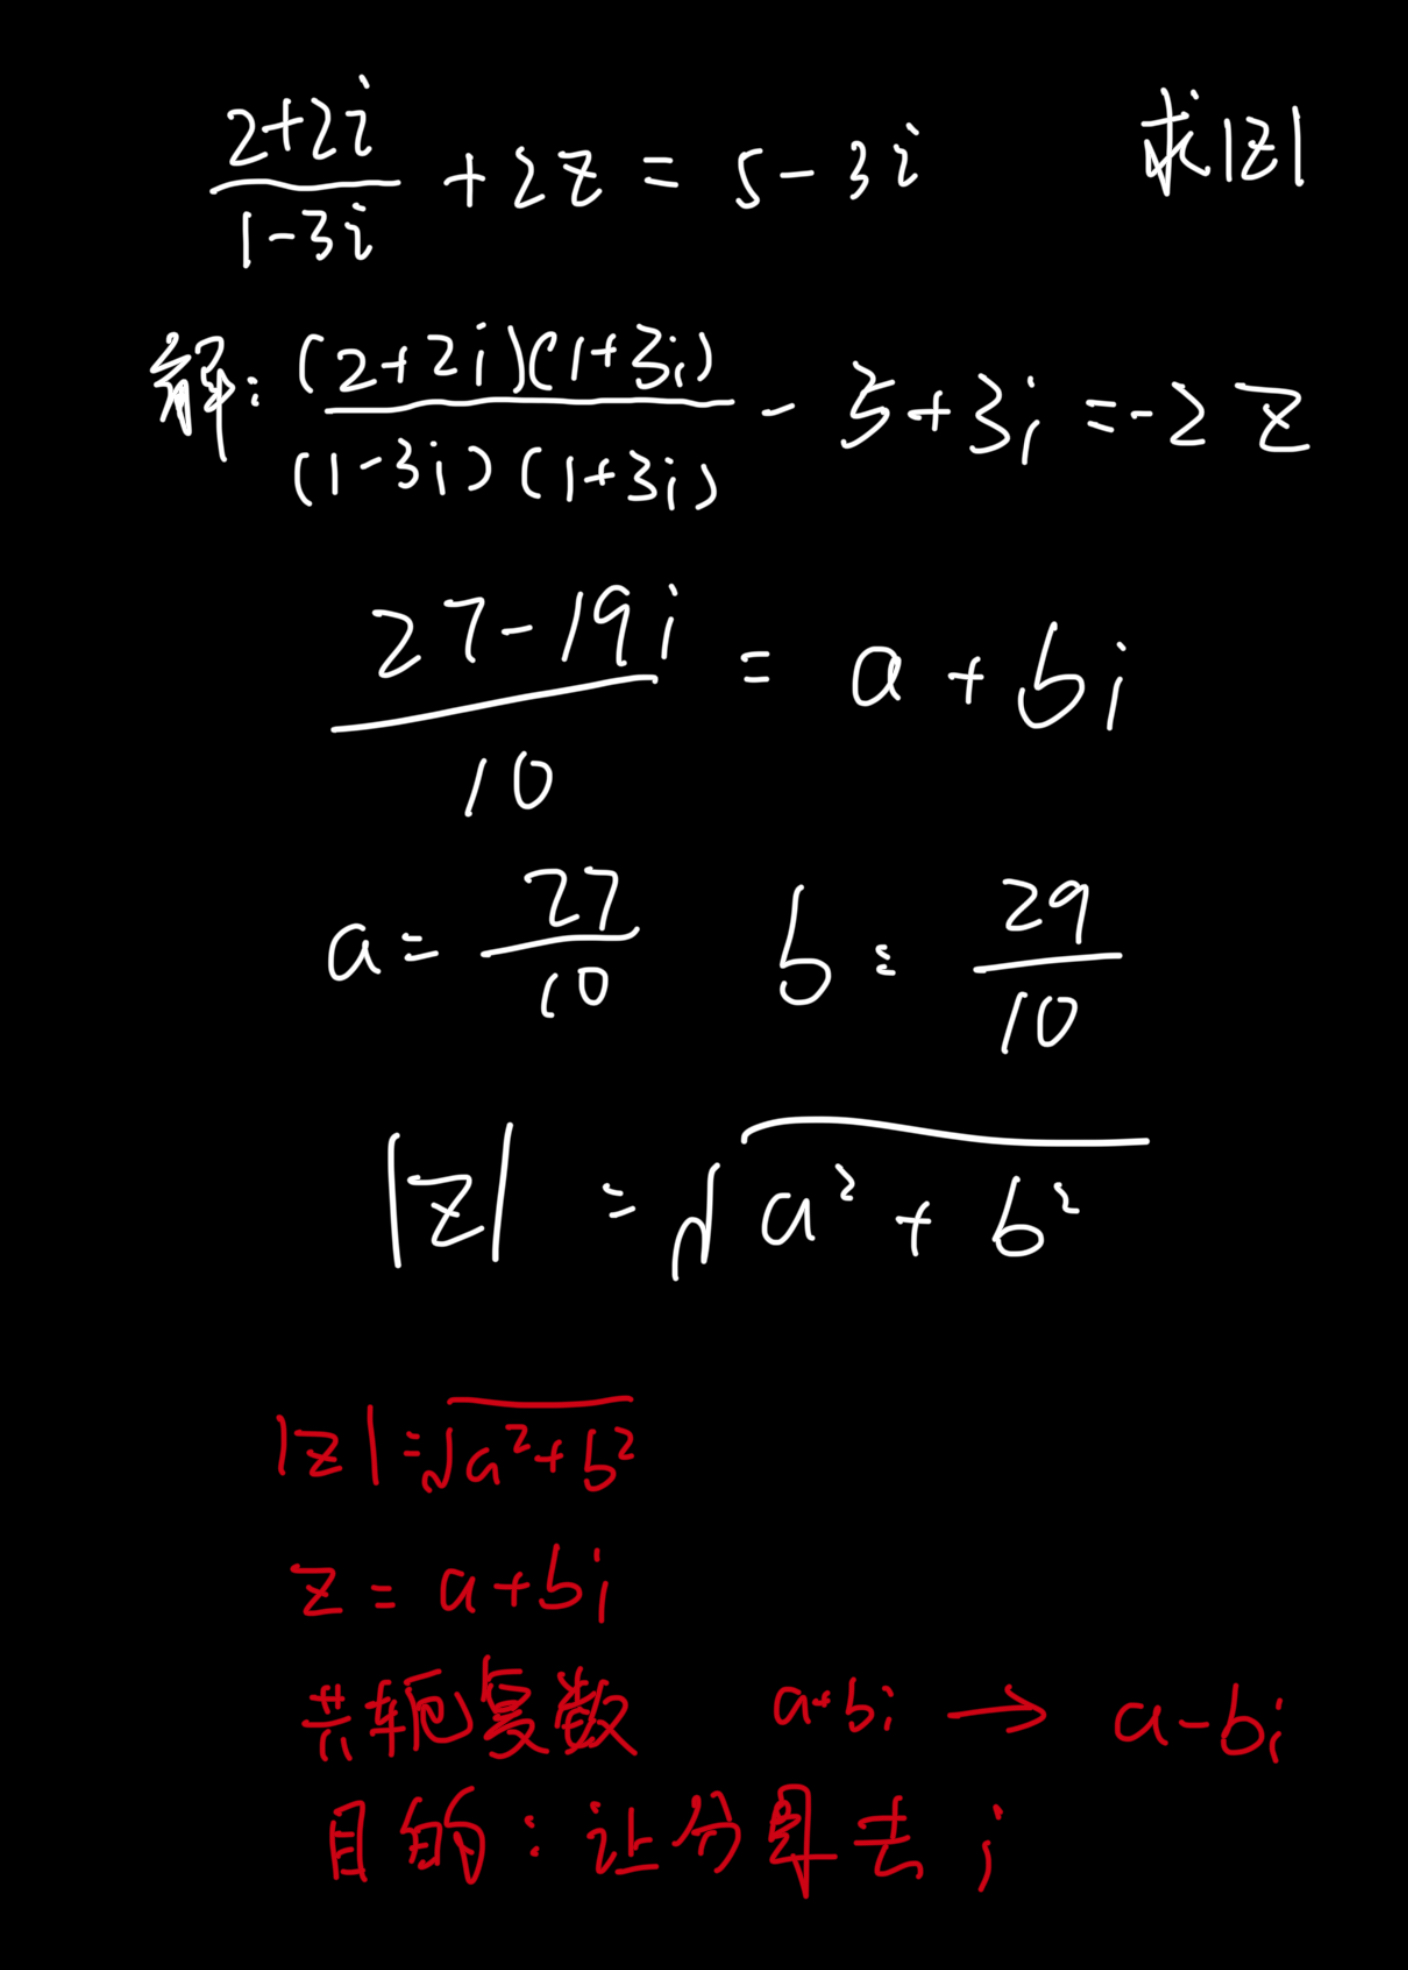 (2+2i)/(1-3i) + 2z = 5-3i 求|z|
解: ((2+2i)(1+3i))/((1-3i)(1+3i)) - 5+3i = -2z
(27-19i)/10 = a+bi
a = 27/10 b = 29/10
|z| = √(a²+b²)
|z| = √(a²+b²)
z = a+bi
共轭复数 a+bi → a-bi
目的: 让分母去 i